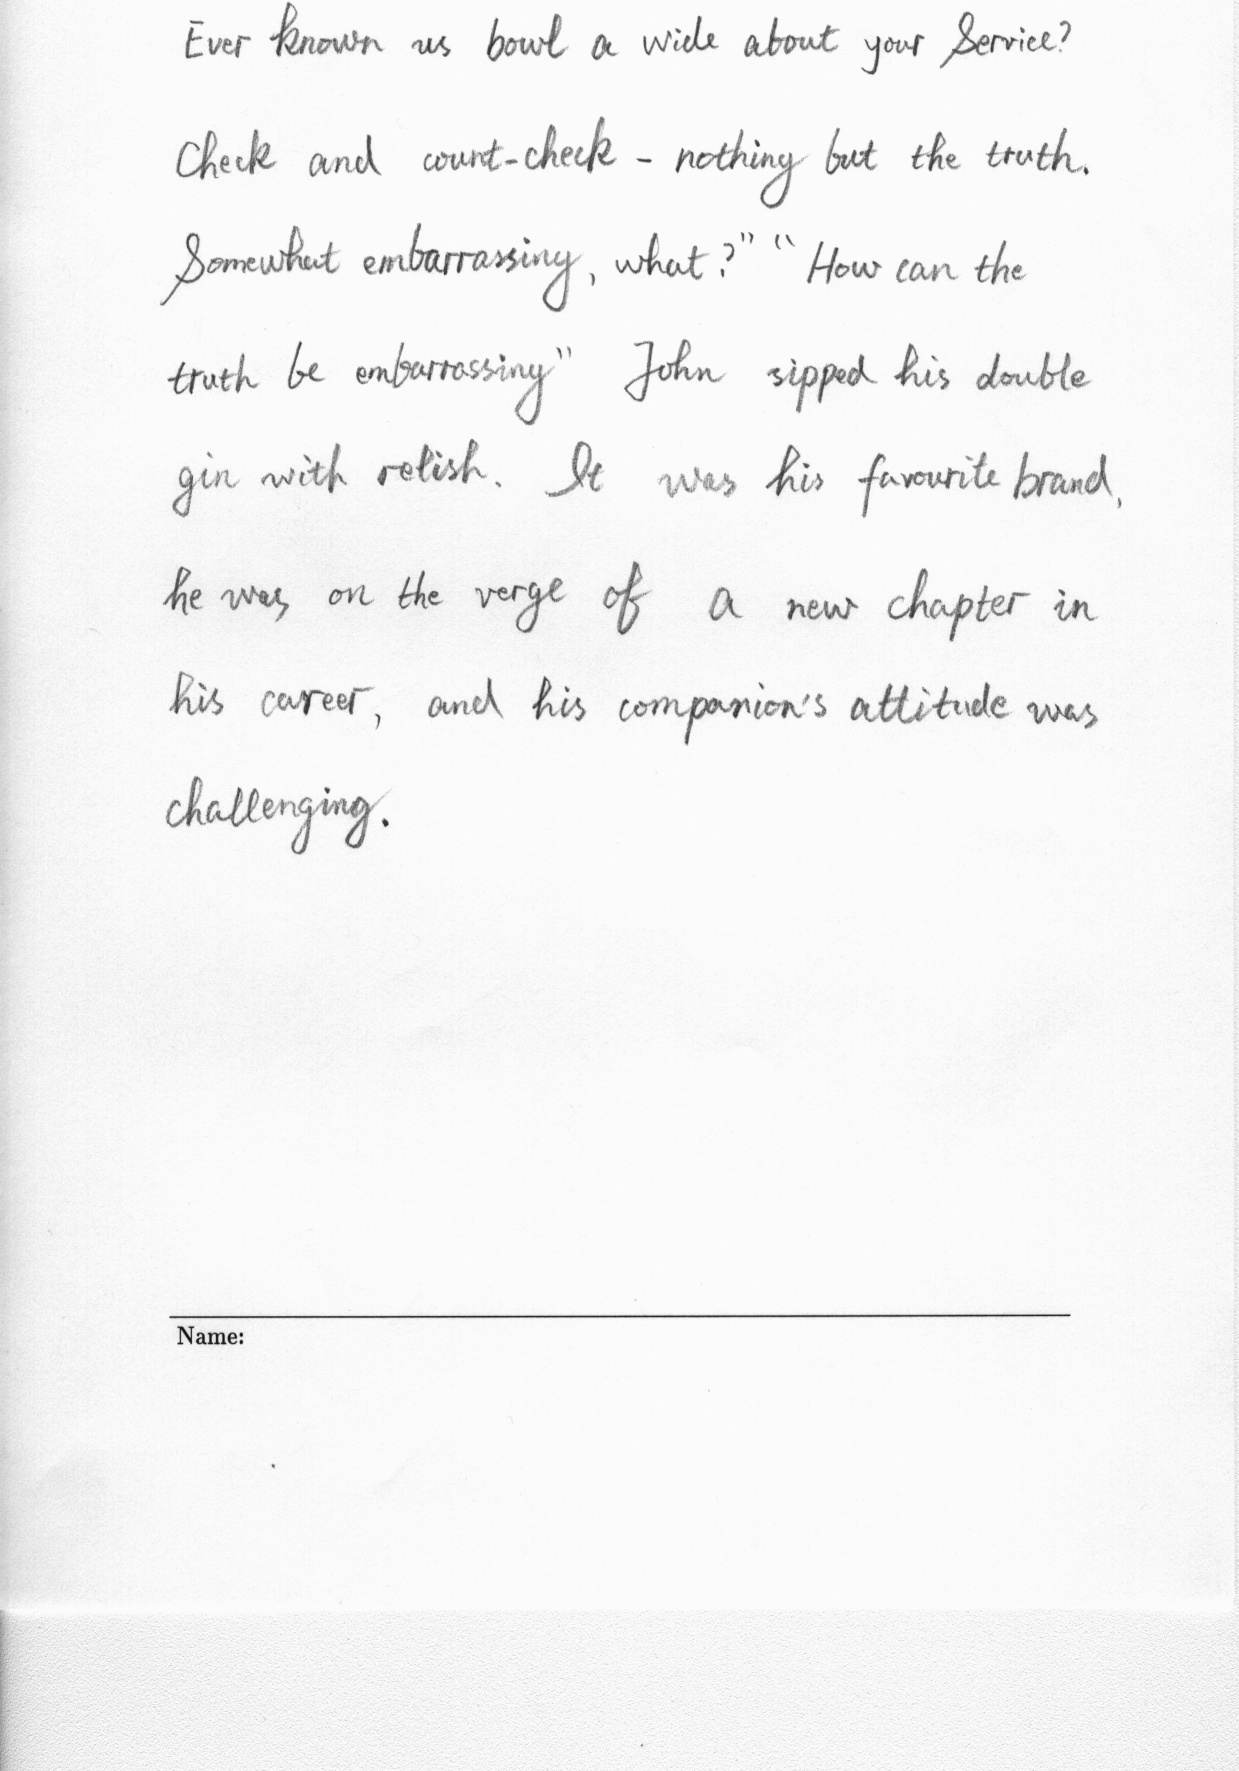 Ever known us bowl a wide about your Service?
Check and count-check - nothing but the truth.
Somewhat embarrassing, what?" "How can the
truth be embarrassing" John sipped his double
gin with relish. It was his favourite brand,
he was on the verge of a new chapter in
his career, and his companion's attitude was
challenging.
Name: